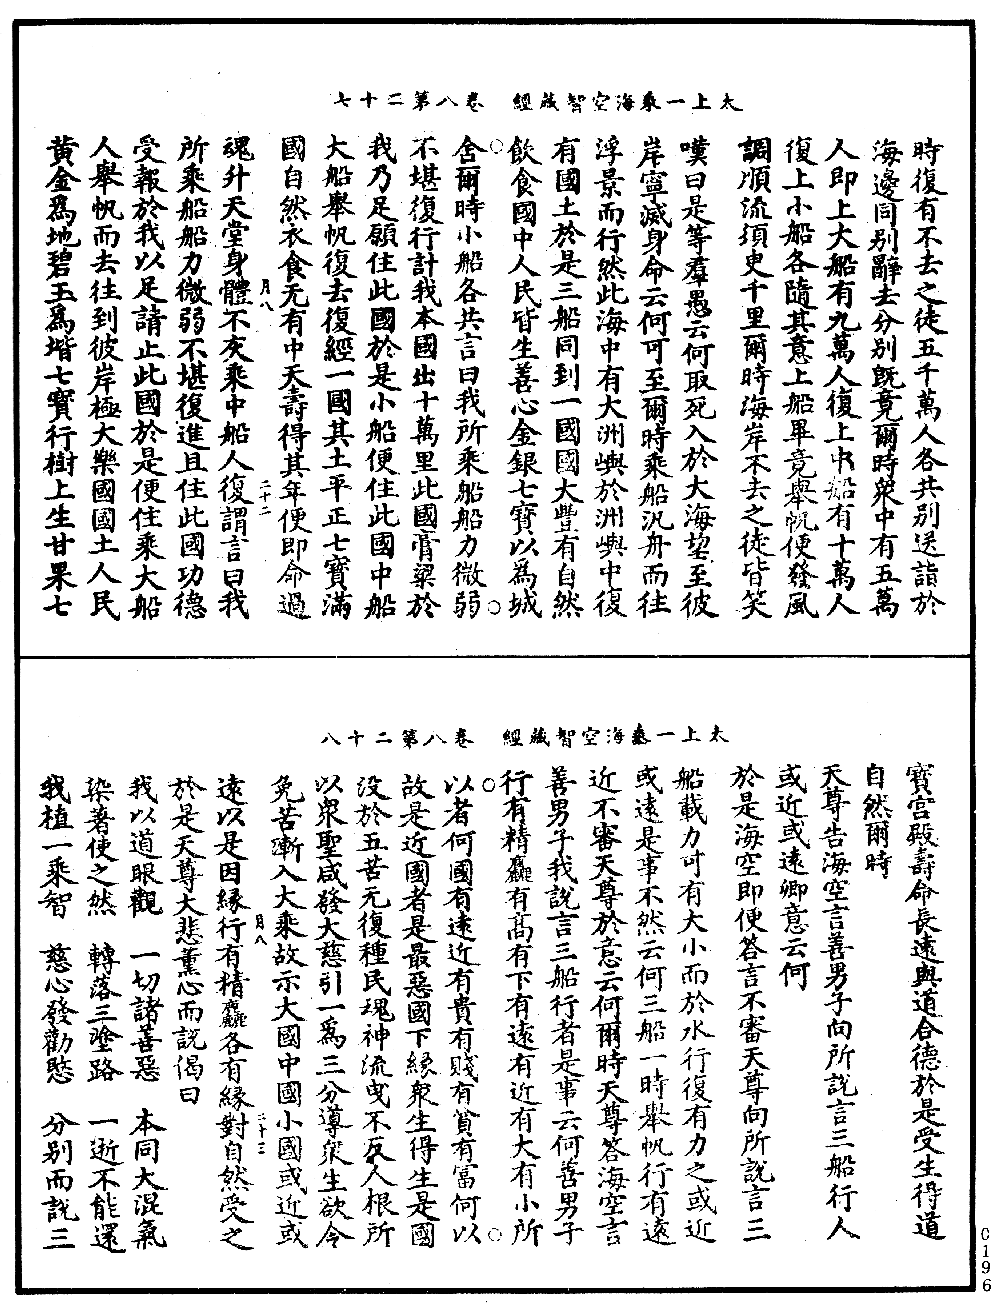 太上一乘海空智藏經　卷八第二十七
時復有不去之徒五千萬人各共別送詣於
海邊同別辭去分別既竟爾時衆中有五萬
人即上大船有九萬人復上中船有十萬人
復上小船各隨其意上船畢竟舉帆便發風
調順流須臾千里爾時海岸不去之徒皆笑
嘆曰是等羣愚云何取死入於大海望至彼
岸寧滅身命云何可至爾時乘船汎舟而往
浮景而行然此海中有大洲嶼於洲嶼中復
有國土於是三船同到一國國大豐有自然
飲食國中人民皆生善心金銀七寶以爲城
舍爾時小船各共言曰我所乘船船力微弱
不堪復行計我本國出十萬里此國膏粱於
我乃足願住此國於是小船便住此國中船
大船舉帆復去復經一國其土平正七寶滿
國自然衣食无有中夭壽得其年便即命過
月八　二十二
魂升天堂身體不灰乘中船人復謂言曰我
所乘船船力微弱不堪復進且住此國功德
受報於我以足請止此國於是便住乘大船
人舉帆而去往到彼岸極大樂國國土人民
黃金爲地碧玉爲堦七寶行樹上生甘果七
太上一乘海空智藏經　卷八第二十八
寶宮殿壽命長遠與道合德於是受生得道
自然爾時
天尊告海空言善男子向所說言三船行人
或近或遠卿意云何
於是海空即便答言不審天尊向所說言三
船載力可有大小而於水行復有力之或近
或遠是事不然云何三船一時舉帆行有遠
近不審天尊於意云何爾時天尊答海空言
善男子我說言三船行者是事云何善男子
行有精麤有高有下有遠有近有大有小所
以者何國有遠近有貴有賤有貧有富何以
故是近國者是最惡國下緣衆生得生是國
没於五苦无復種民魂神流曳不反人根所
以衆聖咸發大慈引一爲三分導衆生欲令
免苦漸入大乘故示大國中國小國或近或
月八　二十三
遠以是因緣行有精麤各有緣對自然受之
於是天尊大悲薰心而說偈曰
我以道眼觀　一切諸善惡　本同大混氣
染著使之然　轉落三塗路　一逝不能還
我植一乘智　慈心發勸愍　分別而說三
C196